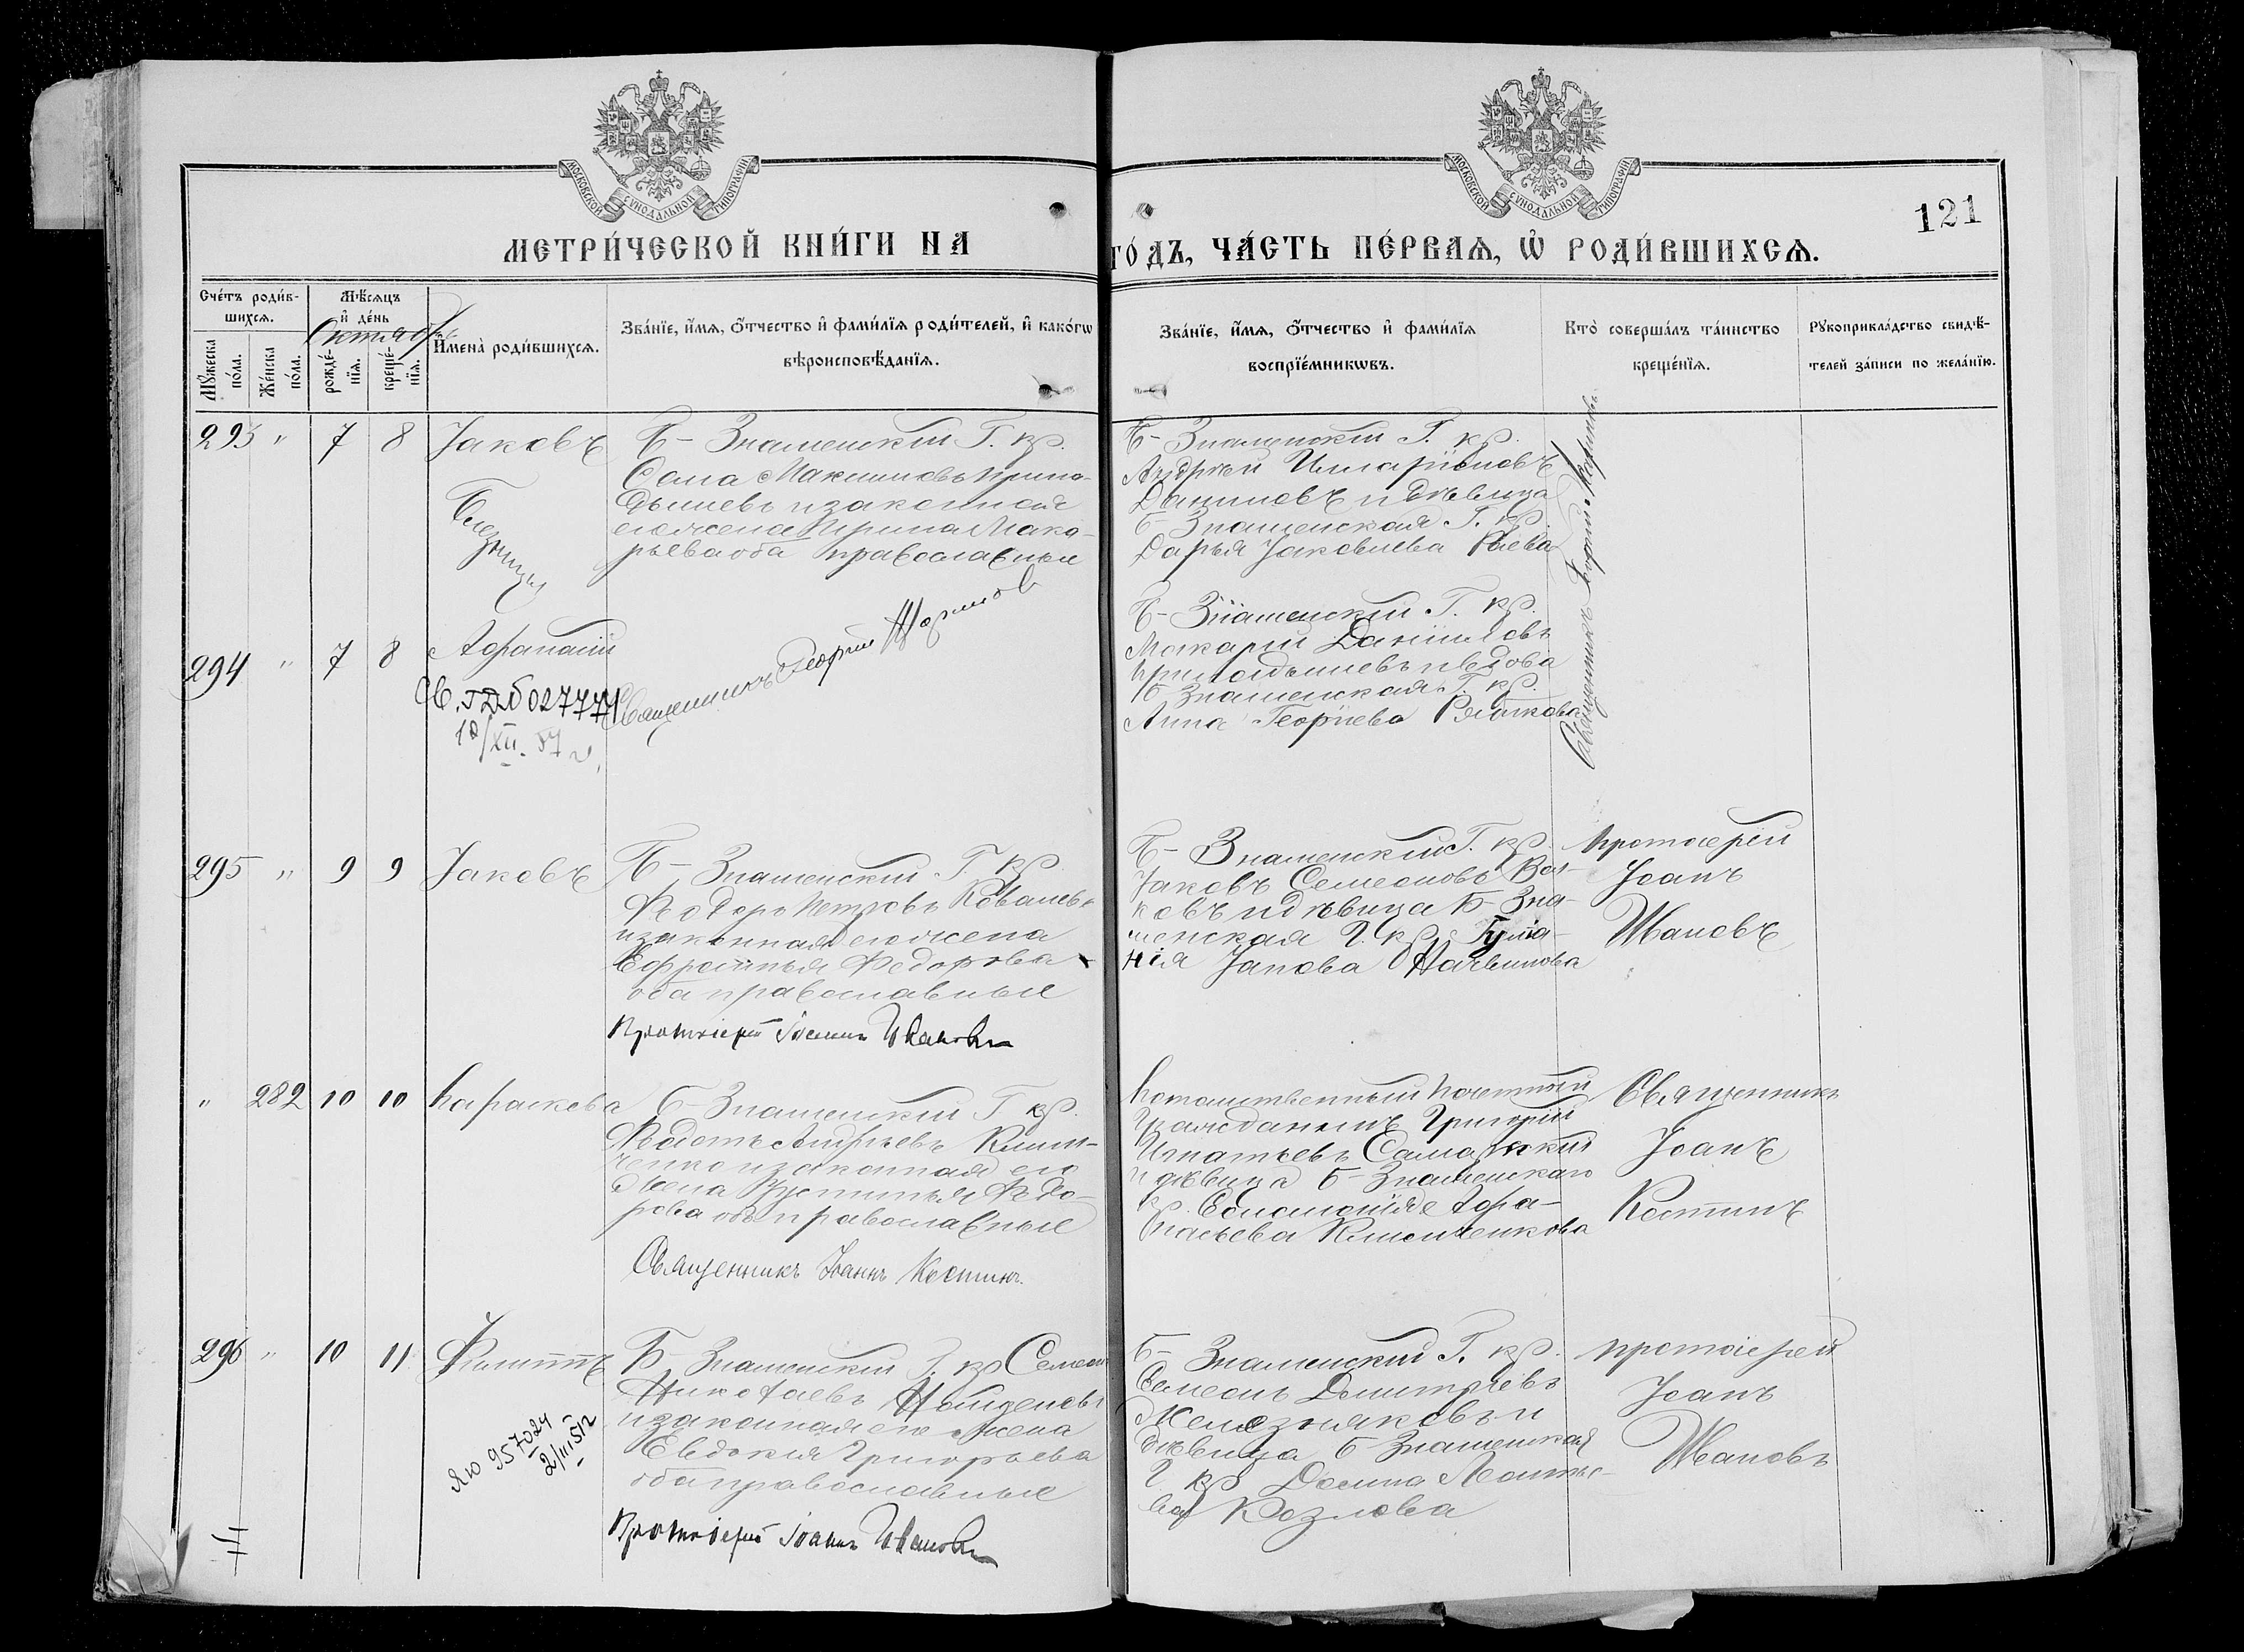 МОСКОВСКОЙ СѴНОДАЛЬНОЙ ТИПОГРАФІИ
МОСКОВСКОЙ СѴНОДАЛЬНОЙ ТИПОГРАФІИ
121
МЕТРИ́ЧЕСКОЙ КНИ́ГИ НА
ГО́ДЪ, ЧА́СТЬ ПЕ́РВАѦ, Ѡ҆ РОДИ́ВШИХСѦ.
Сче́тъ роди́в-
шихсѧ.
Мꙋ́жеска
по́ла.
Же́нска
по́ла.
Мѣ́сѧцъ
и҆ де́нь
Октябрь
рожде́-
нїѧ.
креще́-
нїѧ.
И҆мена̀ роди́вшихсѧ.
Зва́нїе, и҆́мѧ, ѻ҆́тчество и҆ фами́лїѧ роди́телей, и҆ како́гѡ
вѣроисповѣ́данїѧ.
Зва́нїе, и҆́мѧ, ѻ҆́тчество и҆ фами́лїѧ
воспрїе́мникѡвъ.
Кто̀ соверша́лъ та́инство
креще́нїѧ.
Рꙋкоприкла́дство свидѣ́-
телей за́писи по жела́нїю.
293 " 7 8 Іаковъ
Близнецы
Б-Знаменскій Г. кр.
Сава Максимовъ Припа-
дышевъ и законная
его жена Ирина Мака-
рьева оба православные
Б-Знаменскій Г. кр.
Андрей Иларіоновъ
Даниловъ и дѣвица
Б-Знаменская Г. кр.
Дарья Іаковлева
Священникъ Георгій
294 " 7 8 Афанасій
18/XII. 57 г.
Священникъ Георгій
Б-Знаменскій Г. кр.
Макарій Даніиловъ
и вдова
Б-Знаменская Г. кр.
Анна Георгіева
295 " 9 9 Іаковъ
Б-Знаменскій Г кр
Ѳеодоръ Петровъ Ковалевъ
и законная его жена
Ефросинья Федорова
оба православные
Протоіерей Іоаннъ Ивановъ
Б-Знаменскій Г. кр.
Іаковъ Семеоновъ Вол-
ковъ и дѣвица Б-Зна-
менская Г. кр.
Протоіерей
Іоанъ
Ивановъ
" 282 10 10 Параскева
Б-Знаменскій Г кр.
Ѳедотъ Андреевъ Климен-
ченко и законная его
жена Устинья Федо-
рова оба православные
Священникъ Іоаннъ Костинъ.
Потомственный почетный
Гражданинъ Григорій
Игнатьевъ
и дѣвица Б-Знаменская
кр. Соломонида Афа-
насьева Клименченкова
Священникъ
Іоанъ
Костинъ
296 " 10 11 Филиппъ
Яю 957024
2/III 51 г
Б-Знаменскій Г. кр Семеонъ
Николаевъ Найденовъ
и законная его жена
Евдокия Григорьева
оба православные
Протоіерей Іоаннъ Ивановъ
Б-Знаменскій Г. кр.
Семеонъ Дмитріевъ
Железняковъ и
дѣвица Б-Знаменская
Г. кр Домна Леонтье-
ва Козлова
протоіерей
Іоанъ
Ивановъ